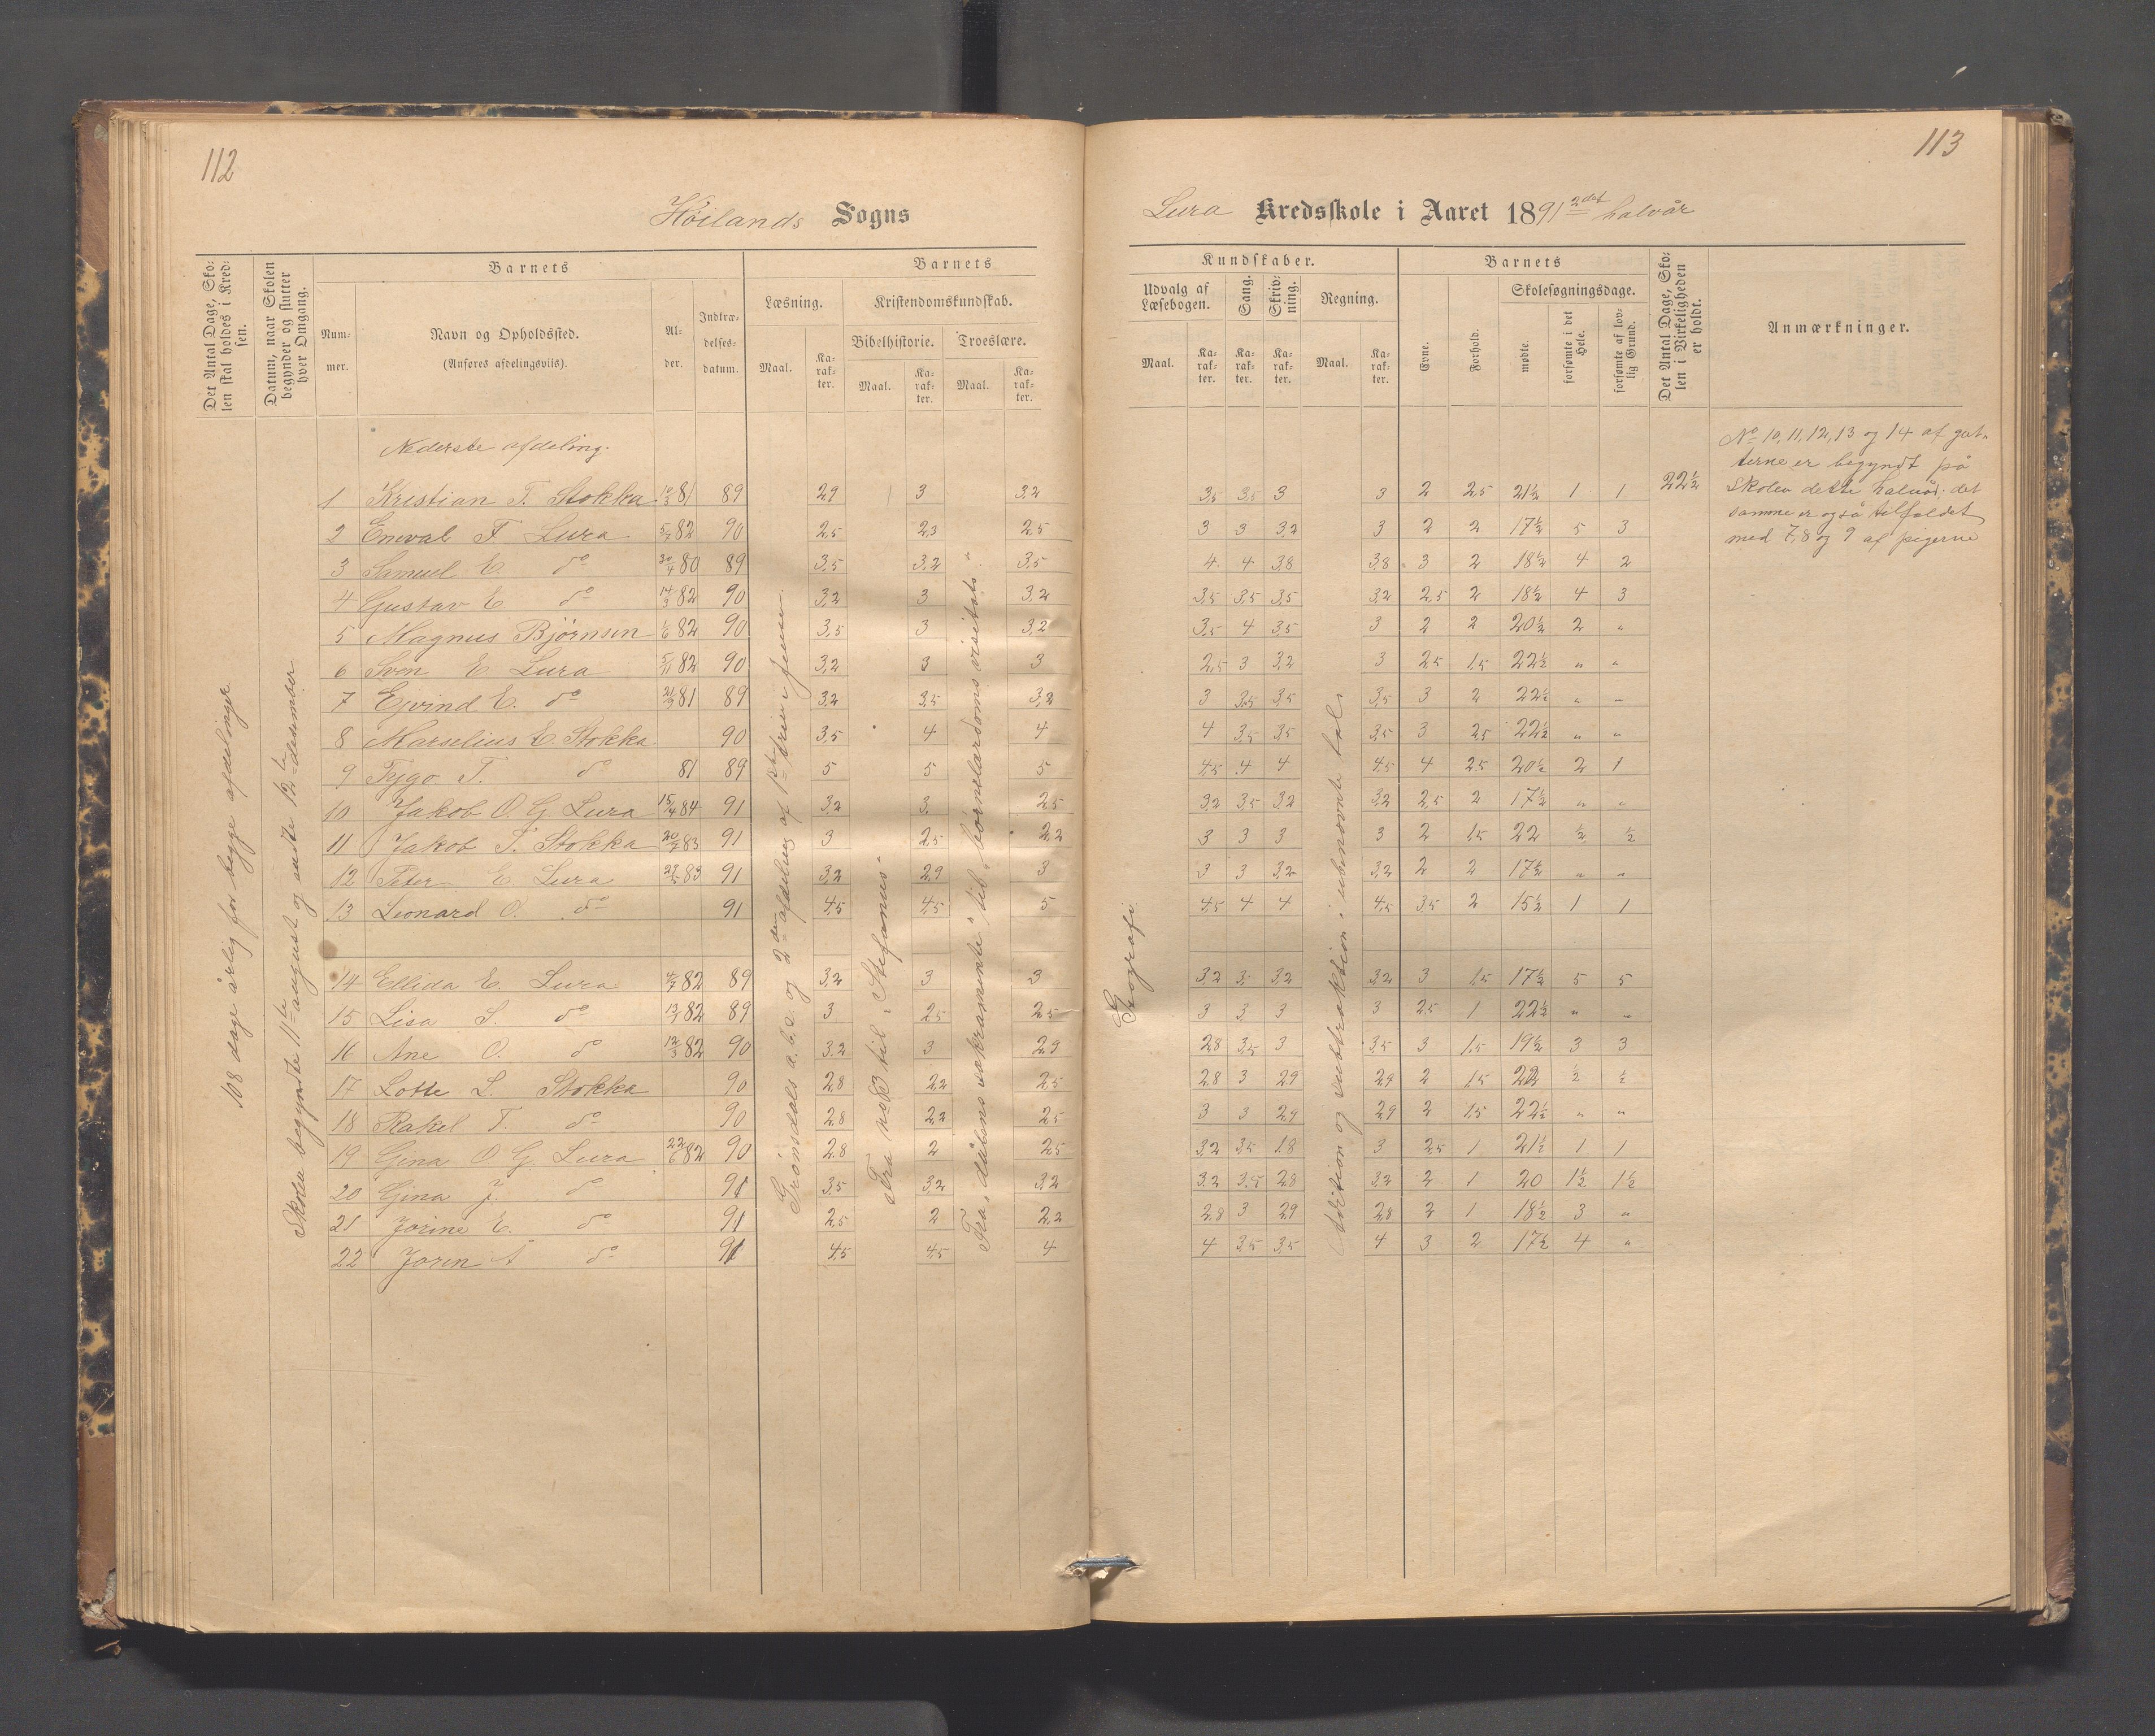 112
113
Höilands Sogns
Lura Kredsskole i Aaret 1891 2det halvår
Det Antal Dage, Sko-
len skal holdes i Kred-
sen.
Datum, naar Skolen
begynder og slutter
hver Omgang.
Barnets
Num-
mer.
Navn og Opholdssted.
(Anføres afdelingsviis).
Al-
der.
Indtræ-
delses-
datum.
Barnets
Læsning.
Kristendomskundskab.
Bibelhistorie.
Troeslære.
Maal.
Ka-
rak-
ter.
Maal.
Ka-
rak-
ter.
Maal.
Ka-
rak-
ter.
Kundskaber.
Udvalg af
Læsebogen.
Sang.
Skriv-
ning.
Regning.
Maal.
Ka-
rak-
ter.
Ka-
rak-
ter.
Ka-
rak-
ter.
Maal.
Ka-
rak-
ter.
Barnets
Evne.
Forhold.
Skolesøgningsdage.
mødte.
forsømte i det
Hele.
forsømte af lov-
lig Grund.
Det Antal Dage, Sko-
len i Virkeligheden
er holdt.
Anmærkninger.
108 dage årlig for begge afdelinger
Skolen begyndte 11te august og endte 12te desember
Nederste afdeling.
1 Kristian T. Stokka 10/3 81 89 2,9 3 3,2 3,5 3,5 3 3 2 2,5 21½ 1 1 22½
2 Eneval F Lura 5/7 82 90 2,5 2,3 2,5 3 3 3,2 3 2 2 17½ 5 3
3 Samuel E. do 30/4 80 89 3,5 3,2 3,5 4 4 3,8 3,8 3 2 18½ 4 2
4 Gustav E. do 14/3 82 90 3,2 3 3,2 3,5 3,5 3,5 3,2 2,5 2 18½ 4 3
5 Magnus Bjørnsen 1/6 82 90 3,5 3 3,2 3,5 4 3,5 3 2 2 20½ 2 "
6 Sven E. Lura 5/11 82 90 3,2 3 3 2,5 3 3,2 3 2,5 1,5 22½ " "
7 Ejvind E. do 81 89 3,2 3,5 3,2 3 3,5 3,5 3,5 3 2 22½ " "
8 Marselius E. Stokka 90 3,5 4 4 4 3,5 3,5 3,5 3 2,5 22½ " "
9 Tejgo T. do 81 89 5 5 5 4,5 4 4 4,5 4 2,5 20½ 2 1
10 Jakob O. G. Lura 15/4 84 91 3,2 3 2,5 3,2 3,5 3,2 3,2 2,5 2 17½ " "
11 Jakob T. Stokka 20/7 83 91 3 2,5 2,2 3 3 3 3 2 1,5 22 ½ ½
12 Peter E. Lura 83 91 3,2 2,9 3 3 3 3,2 3,2 2 2 17½ " "
13 Leonard O. do 91 4,5 4,5 5 4,5 4 4 4,5 3,5 2 15½ 1 1
14 Ellida E. Lura 4/7 82 89 3,2 3 3 3,2 3 3,2 3,2 3 1,5 17½ 5 5
15 Lisa S. do 82 89 3 2,5 2,5 3 3 3 3 2,5 1 22½ " "
16 Ane O. do 12/3 82 90 3,2 3 2,9 2,8 3,5 3 3,5 3 1,5 19½ 3 3
17 Lotte L. Stokka 90 2,8 2,2 2,5 2,8 3 2,9 2,9 2 1,5 22 ½ ½
18 Rakel T. do 90 2,8 2,2 2,5 3 3 2,9 2,9 2 1,5 22½ " "
19 Gina O G. Lura 22/6 82 90 2,8 2 2,5 3,2 3,5 1,8 3 2,5 1 21½ 1 1
20 Gina J. do 91 3,5 3,2 3,2 3,2 3,5 2,8 3,2 2 1 20 1½ 1½
21 Jorine E. do 91 2,5 2 2,2 2,8 3 2,9 2,8 2 1 18½ 3 "
22 Joren A do 91 4,5 4,5 4 4 3,5 3,5 4 3 2 17½ 4 "
Grønsdals a.b.c. og 2den afdeling af 1ste
Fra nr 3 til „Stefanus"
Fra „dåbens sakramente" til „børnelærdoms visitats"
Geografi
Adition og subtraktion i ubenævnte tal
No 10, 11, 12, 13 og 14 af gut-
terne er begyndt på
skolen dette halvår; det
samme er også tilfældet
med 7, 8 og 9 af pigerne